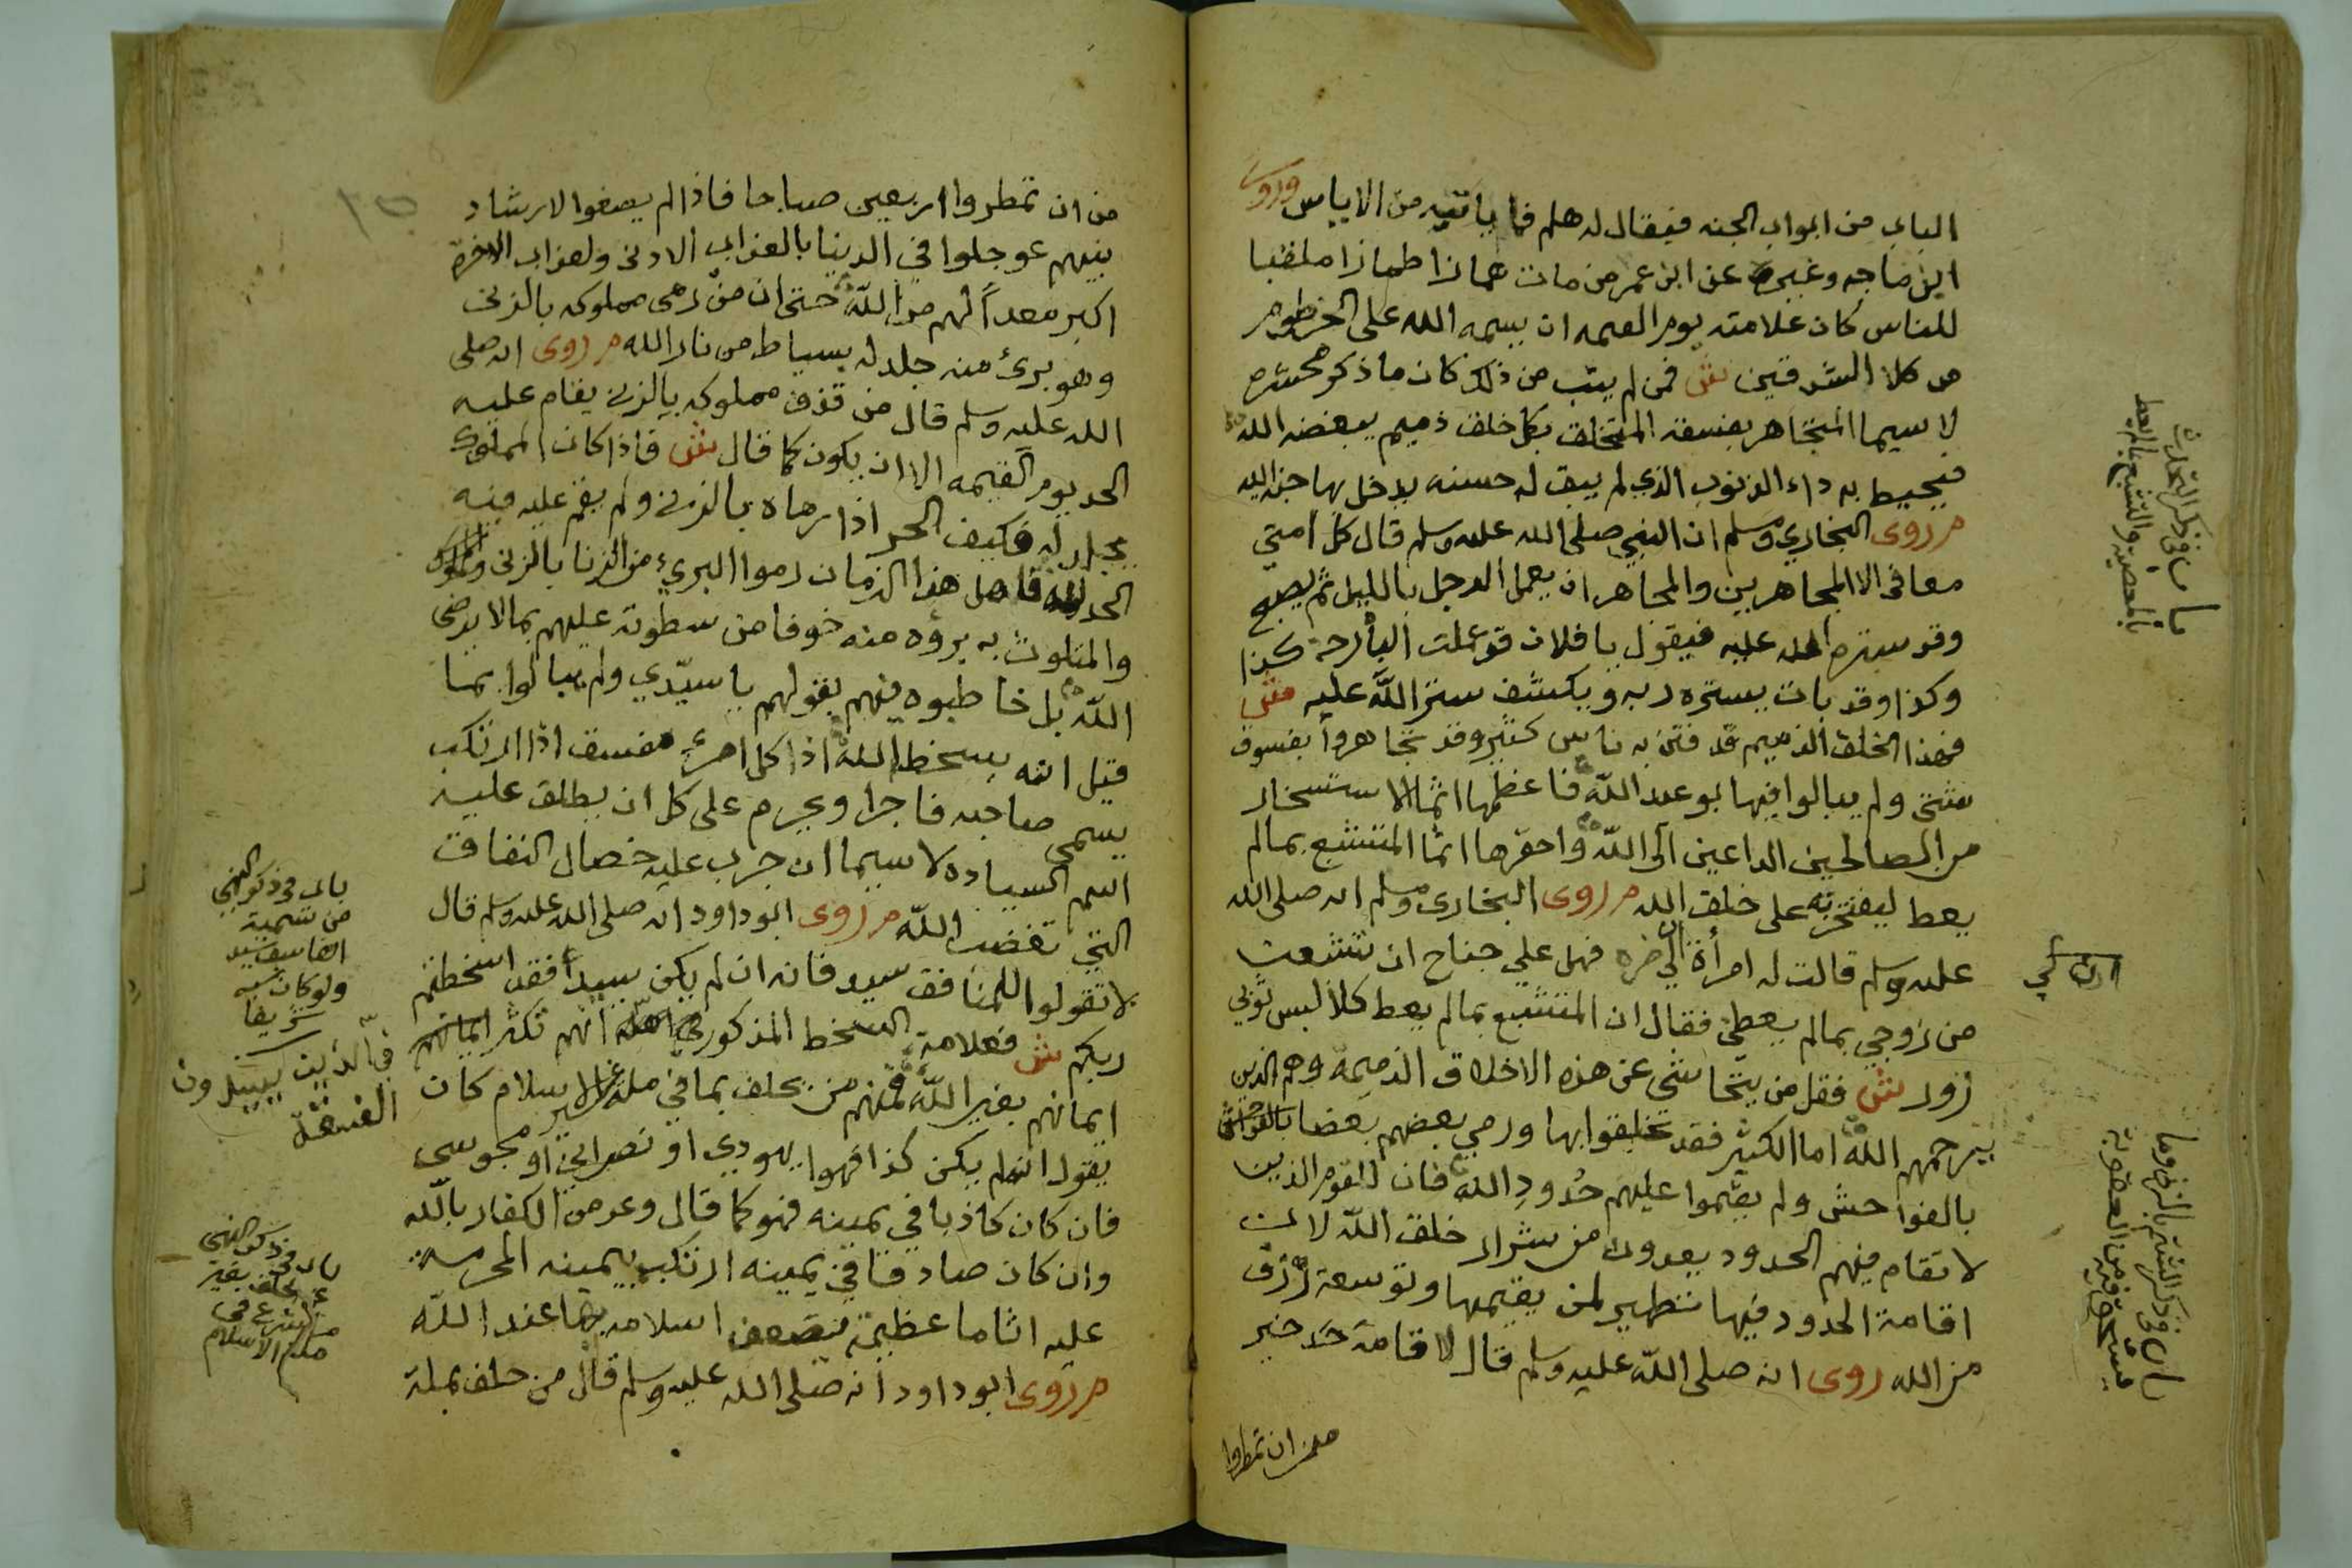 الباب من ابواب الجنه فيقال له هلم فما ياتيه من الاياس وروى
ابن ماجه وغيره عن ابن عمر من مات همازا لمازا ملقبا
للناس كان علامته يوم القيمه ان يسمه الله على الخرطوم
من كلا الشدقين ش فمن لم يتب من ذلك كان ما ذكر محشره
لا سيما المتجاهر بفسقه المتخلق بكل خلق ذميم يبغضه الله
فيحيط به داء الذنوب الذي لم يبق له حسنه يدخل بها جنة الله
م روى البخاري ومسلم ان النبي صلى الله عليه وسلم قال كل امتي
معافى الا المجاهرين والمجاهر ان يعمل الرجل بالليل ثم يصبح
وقد ستره الله عليه فيقول يا فلان قد عملت البارحة كذا
وكذا وقد بات يستره ربه ويكشف ستر الله عليه ش
فهذا الخلق الذميم قد فتن به ناس كثير وقد تجاهروا بفسوق
شتى ولم يبالوا فيها بوعيد الله فاعظمها اثما الاستسخار
من الصالحين الداعين الى الله واحقرها اثما المتشبع بمالم
يعط ليفتخر به على خلق الله م روى البخارى ومسلم انه صلى الله
عليه وسلم قالت له امرأة ان لي ضره فهل علي جناح ان تشبعت
من زوجي بمالم يعطني فقال ان المتشبع بمالم يعط كلابس ثوبي
زور ش فقل من يتحاشى عن هذه الاخلاق الذميمه وهم الذين
يرحمهم الله اما الكثير فقد تخلقوا بها ورمي بعضهم بعضا
بالفواحش ولم يقيموا عليهم حُدودِ الله فان القوم الذين
لا تقام فيهم الحدود يعدون من شرار خلق الله لان
اقامة الحدود فيها تطهير لمن يقيمها وتوسعة رزق
من الله روى انه صلى الله عليه وسلم قال لاقامة حد خير
من ان تمطروا
باب في ذكر التحدث
بالمعصية والتشبع بمالم يعط
ان لي
باب في ذكر الشتم بالزنى وما
يستحق فيه من العقوبة
من ان تمطروا اربعين صباحا فاذا لم يصغوا لارشاد
نبيهم عوجلوا في الدينا بالعذاب الادنى ولعذاب الاخرة
اكبر معداً لهم من الله حتى ان من رمى مملوكه بالزنى
وهو برئ منه جلد له بسياط من نار الله م روى انه صلى
الله عليه وسلم قال من قذف مملوكه بالزنى يقام عليه
الحد يوم القيمه الا ان يكون كما قال ش فاذا كان المملوك
يجلد له فكيف الحر اذا رماه بالزنى ولم يقم عليه فيه
الحد لله فاهل هذا الزمان رموا البريء من الزنا بالزنى
والمتلوث به برؤه منه خوفا من سطوته عليهم بمالا يرضى
الله بل خاطبوه فيهم بقولهم يا سيّدي ولم يبالوا بما
قيل انه بسخط الله اذا كل امرئ مفسق اذا ارتكب
يسمى صاحبه فاجرا ويحرم على كل ان يطلق عليه
اسم السياده لا سيما ان جرب عليه خصال النفاق
التي تغضب الله م روى ابو داود انه صلى الله عليه وسلم قال
لا تقولوا للمنافق سيد فانه ان لم يكن سيداً فقد اسخطتم
ربكم ش فعلامة السخط المذكور انهم تكثر ايمانهم
ايمانهم بغير الله فمنهم من يحلف بما في ملة غير الاسلام كان
يقول ان لم يكن كذا فهو ايهودي او نصراني او مجوسى
فان كان كاذبا في يمينه فهو كما قال وعد من الكفار بالله
وان كان صادقا في يمينه ارتكب بيمينه المحرمة
عليه اثاما عظيمة اسلامه بها عند الله
م روى ابو داود انه صلى الله عليه وسلم قال من حلف بملة
باب في ذكر النهي
من تسمية
الفاسق سيد
ولو كان نسبه
شريفا
في الذين يسيدون
الفسقة
باب في ذكر النهي
عن الحلف بغير
ملة الاسلام